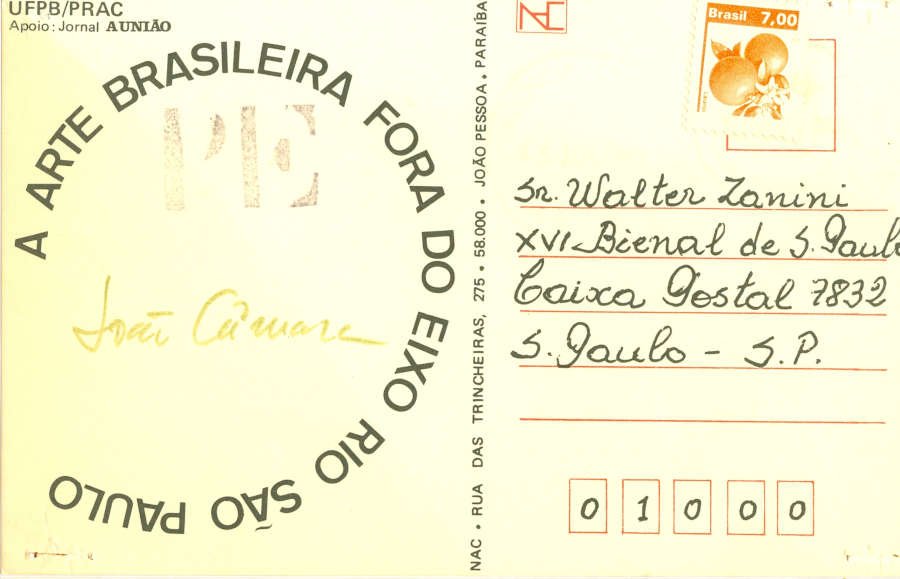 UFPB/PRAC
Apoio: Jornal A UNIÃO
A ARTE BRASILEIRA FORA DO EIXO RIO SÃO PAULO
PE
João Câmara
NAC • RUA DAS TRINCHEIRAS, 275 • 58.000 • JOÃO PESSOA • PARAÍBA
Brasil 7,00
Sr. Walter Zanini
XVI Bienal de S. Paulo
Caixa Postal 7832
S. Paulo - S.P.
01000